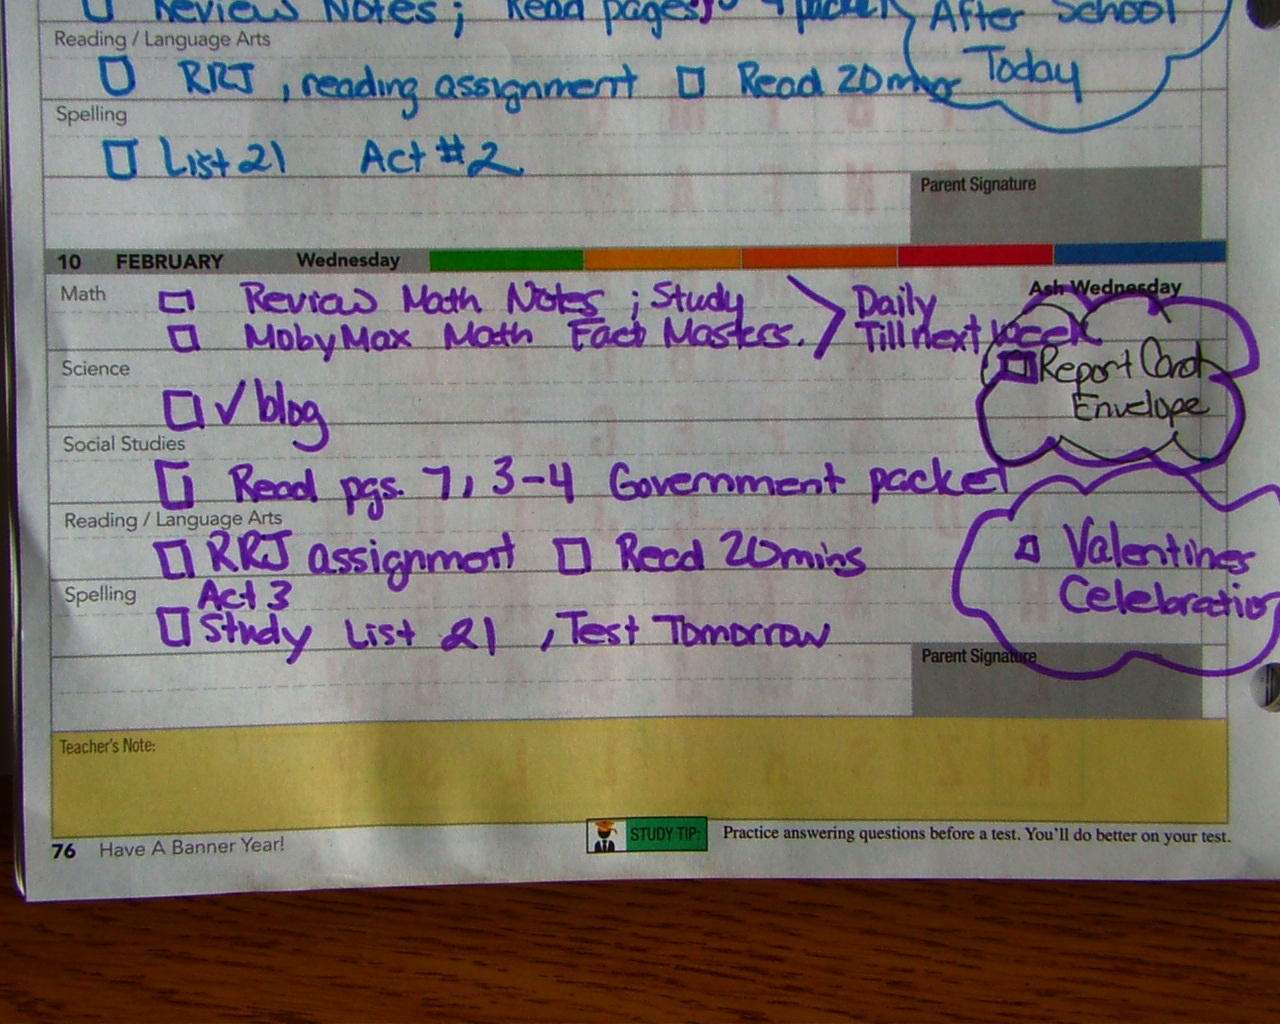 Review Notes; Read pages, packet
After School
Reading / Language Arts
RRJ, reading assignment Read 20 mins
Today
Spelling
List 21 Act #2
Parent Signature
10 FEBRUARY Wednesday
Ash Wednesday
Math
Review Math Notes; Study
MobyMax Math Fact Masters.
Daily
Till next week
Report Card
Envelope
Science
✓ blog
Social Studies
Read pgs. 7, 3-4 Government packet
Reading / Language Arts
RRJ assignment Read 20 mins
Valentines
Celebration
Spelling
Act 3
Study List 21, Test Tomorrow
Parent Signature
Teacher's Note:
76 Have A Banner Year!
STUDY TIP: Practice answering questions before a test. You'll do better on your test.